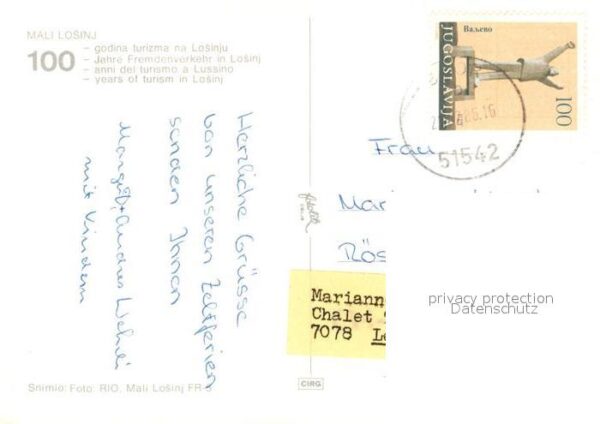 MALI LOŠINJ
100 – godina turizma na Lošinju
– Jahre Fremdenverkehr in Lošinj
– anni del turismo a Lussino
– years of turism in Lošinj
Herzliche Grüsse
von unseren Zeltferien
senden Ihnen
Margrit + Andres
mit Kindern
Snimio: Foto: RIO, Mali Lošinj FR
CIRG
Ваљево
JUGOSLAVIJA
100
51542
Frau
Mar
Rös
Mariann
Chalet
7078 Le
privacy protection
Datenschutz